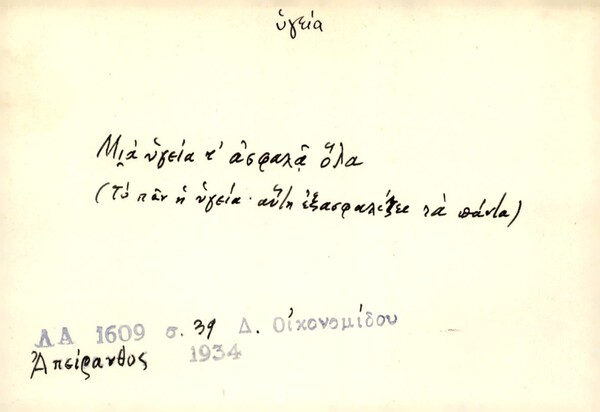 ὑγεία
Μιὰ ὑγεία τ' ἀσφαλᾷ ὅλα
(τὸ πᾶν ἡ ὑγεία· αὕτη ἐξασφαλίζει τὰ πάντα)
ΛΑ 1609 σ. 39 Δ. Οἰκονομίδου
Ἀπείρανθος 1934